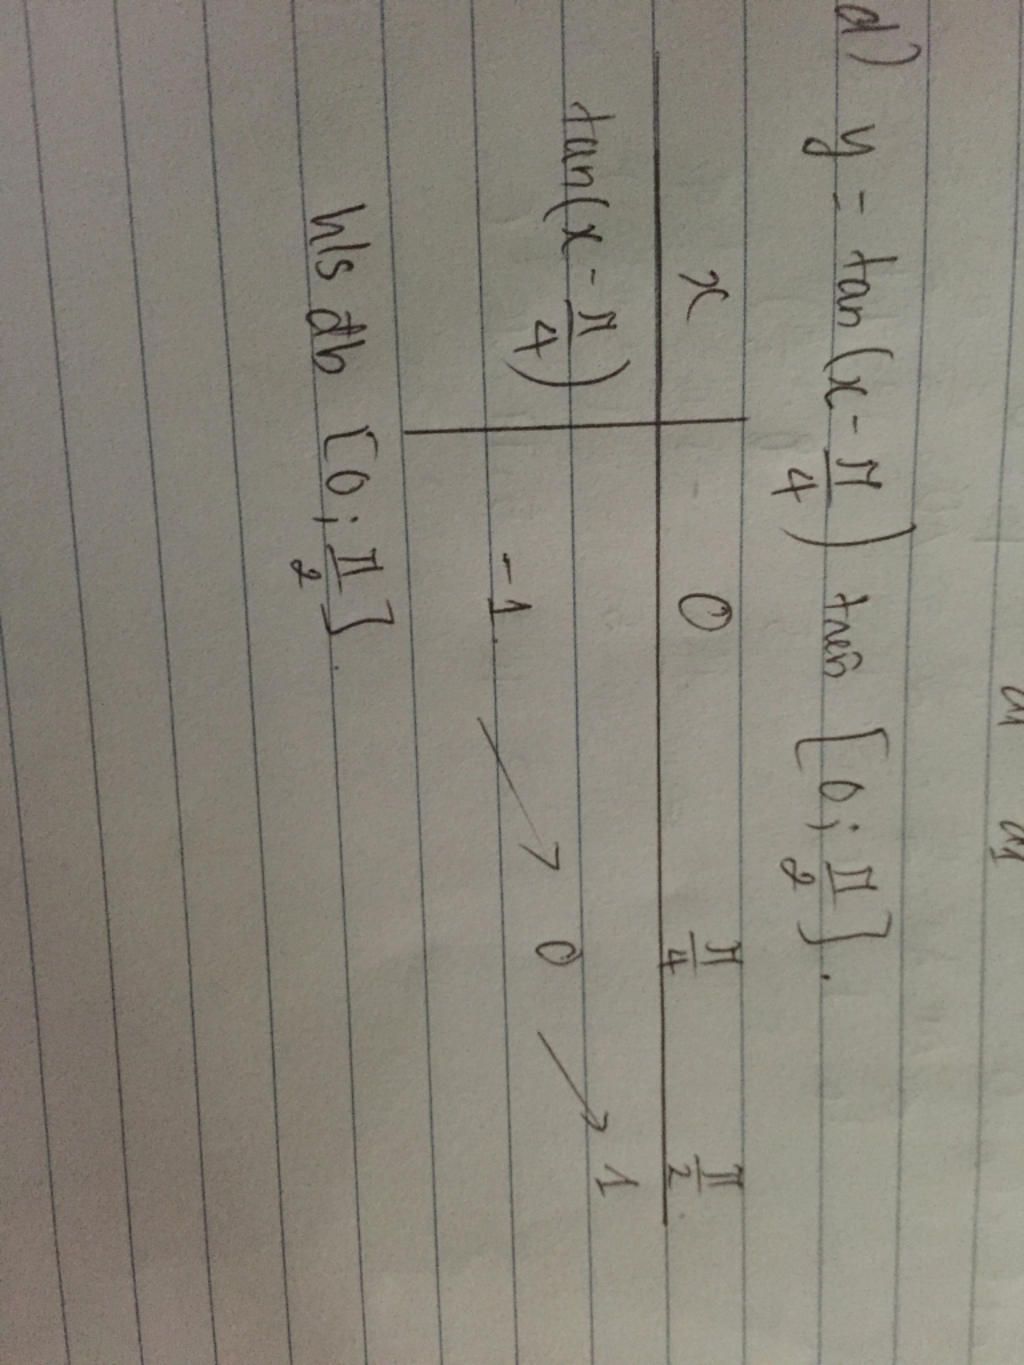 d) y = tan(x - π/4) trên [0; π/2].
x 0 π/4 π/2
tan(x - π/4) -1 ↗ 0 ↗ 1
h/s đb [0; π/2].